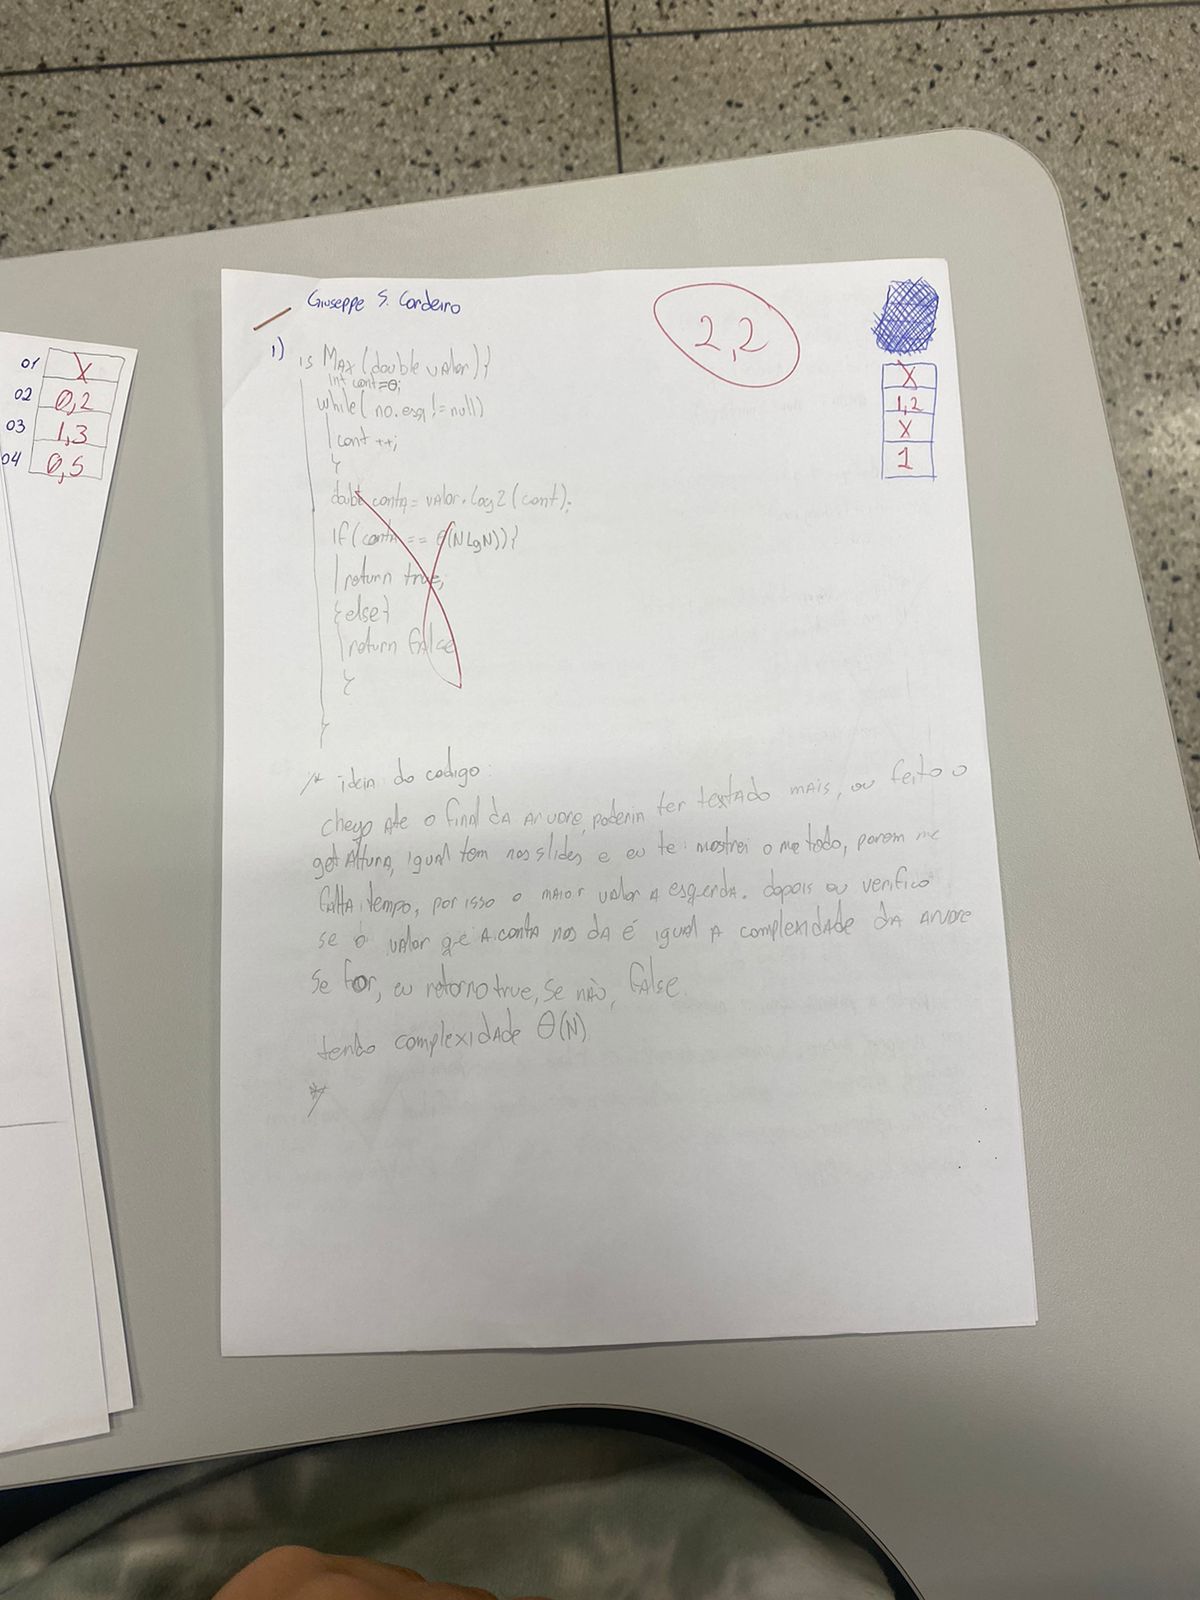 01 X
02 0,2
03 1,3
04 0,5
Giuseppe S. Cordeiro
2,2
X
1,2
X
1
1) is Max (double valor) {
int cont = 0;
while( no.esq != null)
cont ++;
}
double conta = valor.log2 (cont);
If (conta == Θ(N Lg N)) {
return true;
} else {
return false
}
}
/* ideia do codigo:
chego ate o final da arvore, poderia ter testado mais, ou feito o
get Altura, igual tem nos slides e eu te mostrei o metodo, porem me
falta tempo, por isso o maior valor a esquerda. depois eu verifico
se o valor qe a conta nos da é igual a complexidade da arvore
se for, eu retorno true, se não, false.
tendo complexidade Θ(N)
*/